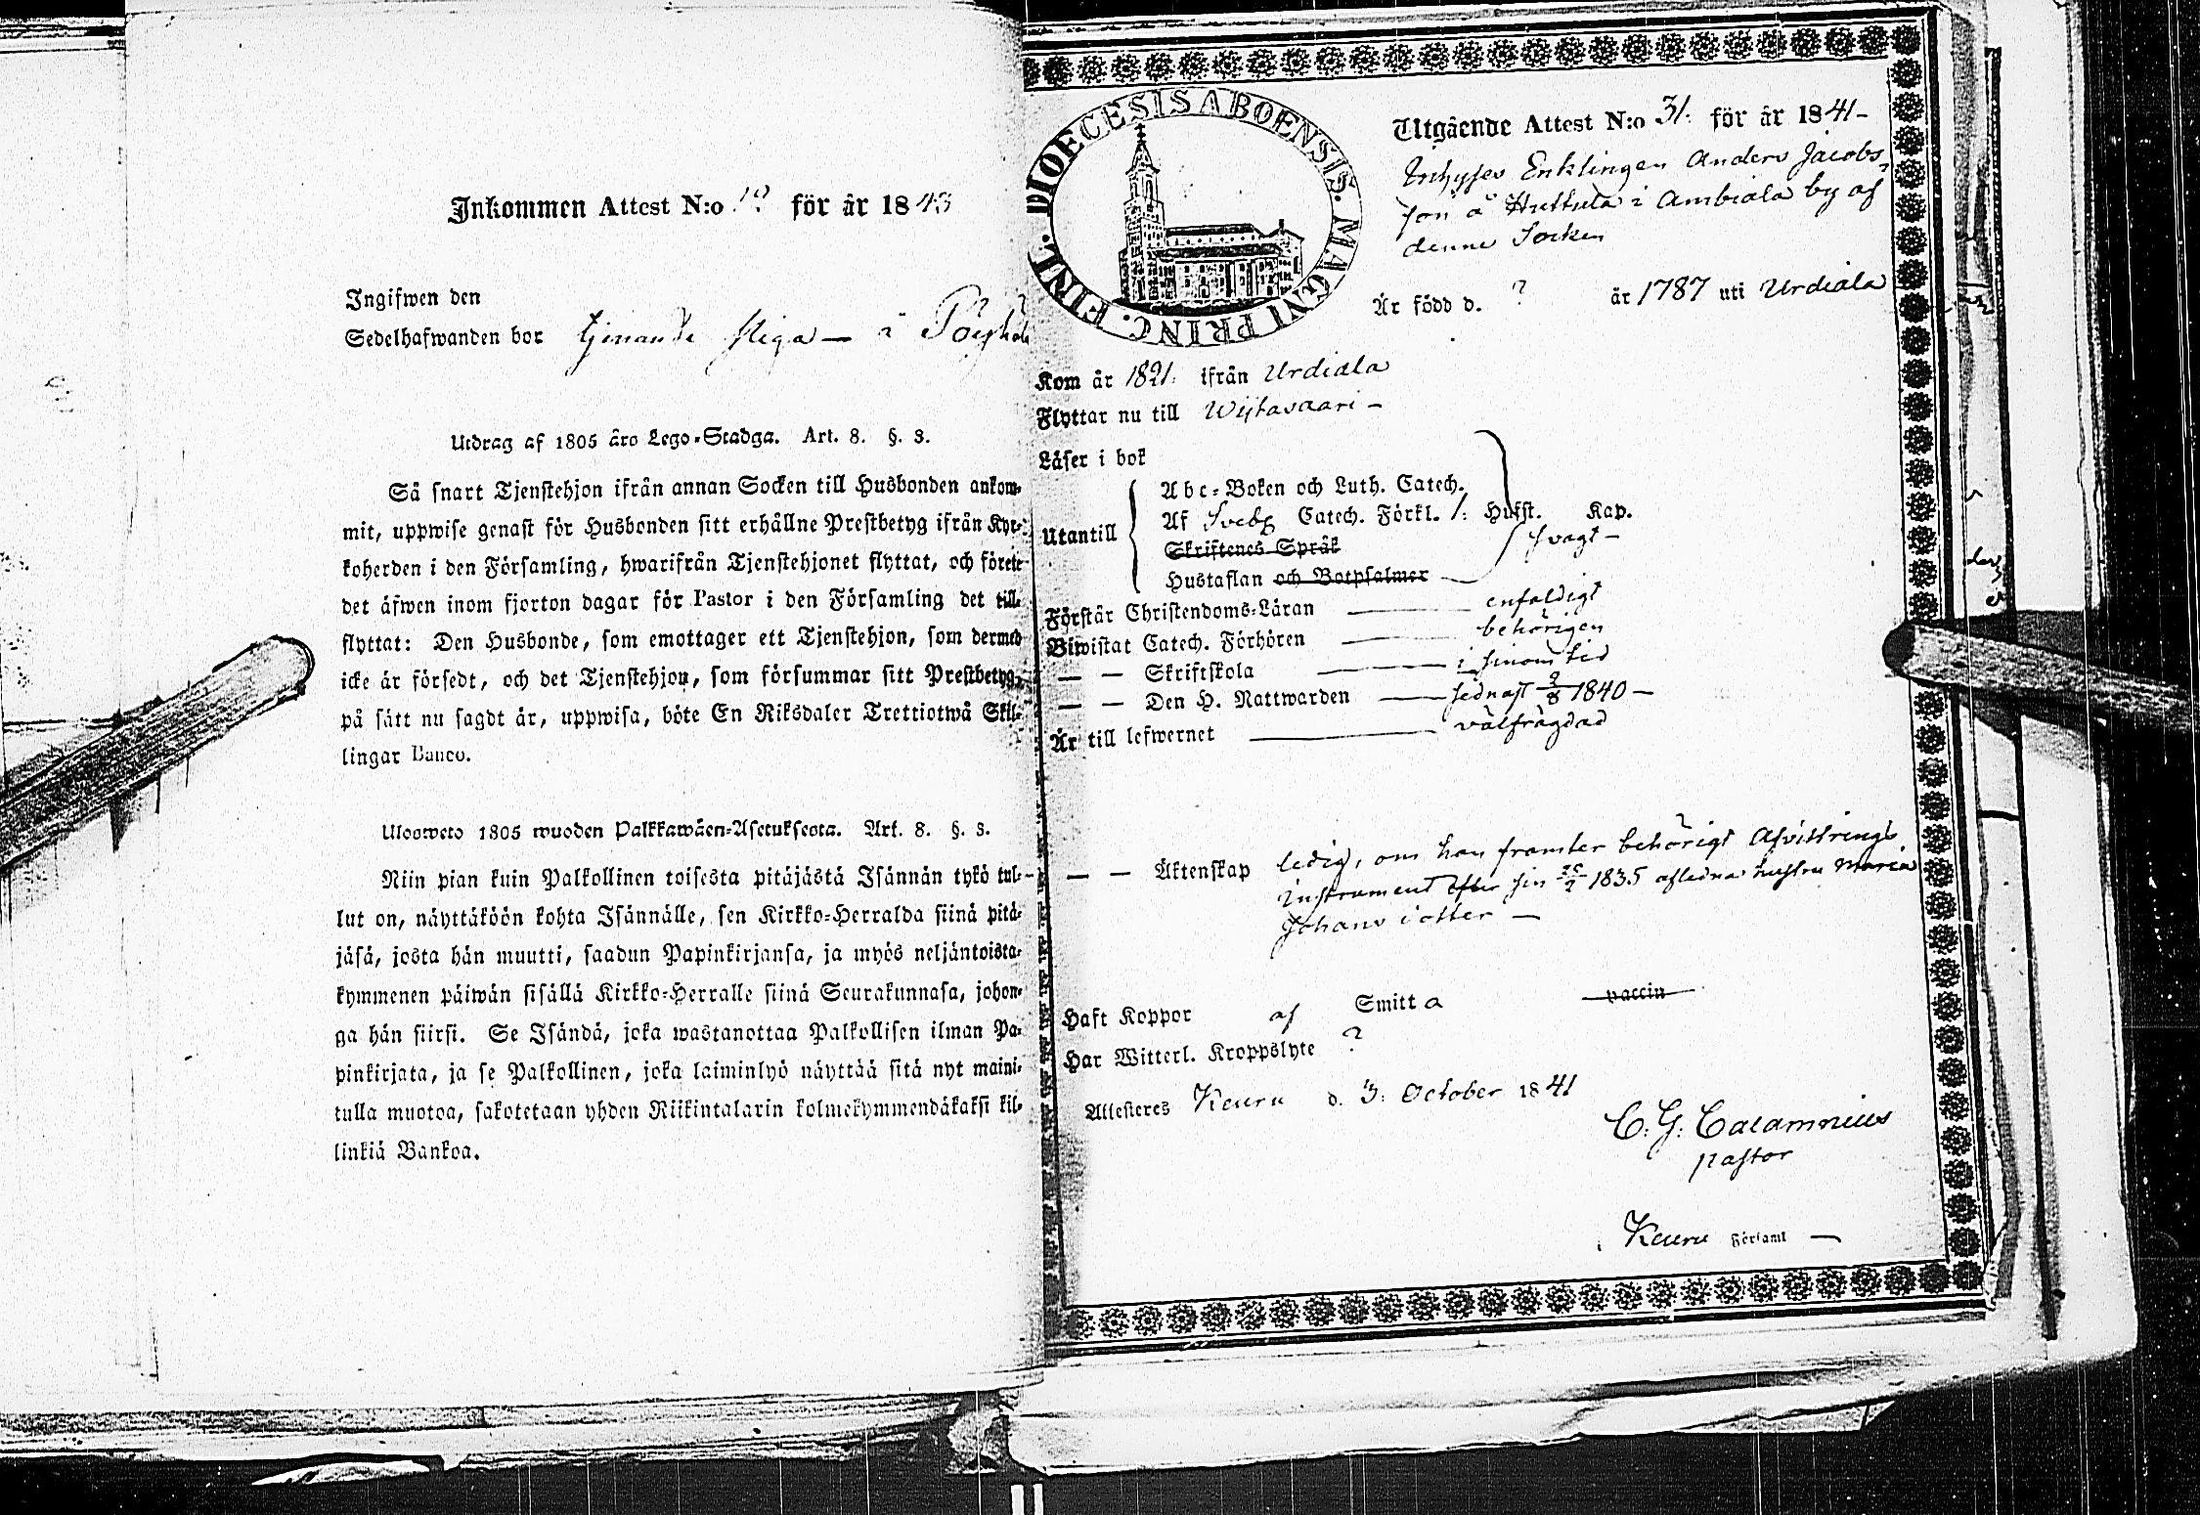 Inkommen Attest N:o för år 1843
Ingifwen den
Sedelhafwanden bor tjenande piga — å
Utdrag af 1805 års Lego-Stadga. Art. 8. §. 3.
Så snart Tjenstehjon ifrån annan Socken till Husbonden ankom-
mit, uppwise genast för Husbonden sitt erhållne Prestbetyg ifrån Kyr-
koherden i den Församling, hwarifrån Tjenstehjonet flyttat, och förete
det äfwen inom fjorton dagar för Pastor i den Församling det till-
flyttat: Den Husbonde, som emottager ett Tjenstehjon, som dermed
icke är försedt, och det Tjenstehjon, som försummar sitt Prestbetyg,
på sätt nu sagdt är, uppwisa, böte En Riksdaler Trettiotwå Skil-
lingar Banco.
Ulosweto 1805 wuoden Palkkawäen-Asetuksesta. Art. 8. §. 3.
Niin pian kuin Palkollinen toisesta pitäjästä Isännän tykö tul-
lut on, näyttäköön kohta Isännälle, sen Kirkko-Herralda siinä pitä-
jäsä, josta hän muutti, saadun Papinkirjansa, ja myös neljäntoista-
kymmenen päiwän sisällä Kirkko-Herralle siinä Seurakunnasa, johon-
ga hän siirsi. Se Isändä, joka wastanottaa Palkollisen ilman Pa-
pinkirjata, ja se Palkollinen, joka laiminlyö näyttää sitä nyt maini-
tulla muotoa, sakotetaan yhden Riikintalarin kolmekymmendäkaksi kil-
linkiä Bankoa.
DIOECESIS ABOENSIS. MAGNI PRINC. FINL.
Utgående Attest N:o 31. för år 1841 –
Inhyses Enklingen Anders Jacobs-
son å Huttula i Ambiala by af
denne Socken
Är född d. ? år 1787 uti Urdiala
Kom år 1821. ifrån Urdiala
Flyttar nu till Wijtasaari –
Läser i bok
Abc-Boken och Luth. Catech.
Utantill
Af Svebg Catech. Förkl. 1: Hufst. Kap.
svagt –
Skriftenes Språk
Hustaflan och Botpsalmer
Förstår Christendoms-Läran — enfaldigt
Biwistat Catech. Förhören — behörigen
— — Skriftskola — i sinom tid
— — Den H. Nattwarden — sednast 9/8 1840 –
Är till lefwernet — välfrägdad
— — Äktenskap ledig, om han framter behörigt Afvittrings
instrument efter sin 1835 aflidna hustru Maria
Johans dotter –
Haft Koppor af Smitta vaccin
Har Witterl. Kroppslyte ?
Attesteres Keuru d. 3: October 1841
C. G. Calamnius
pastor
i Keuru Församl —